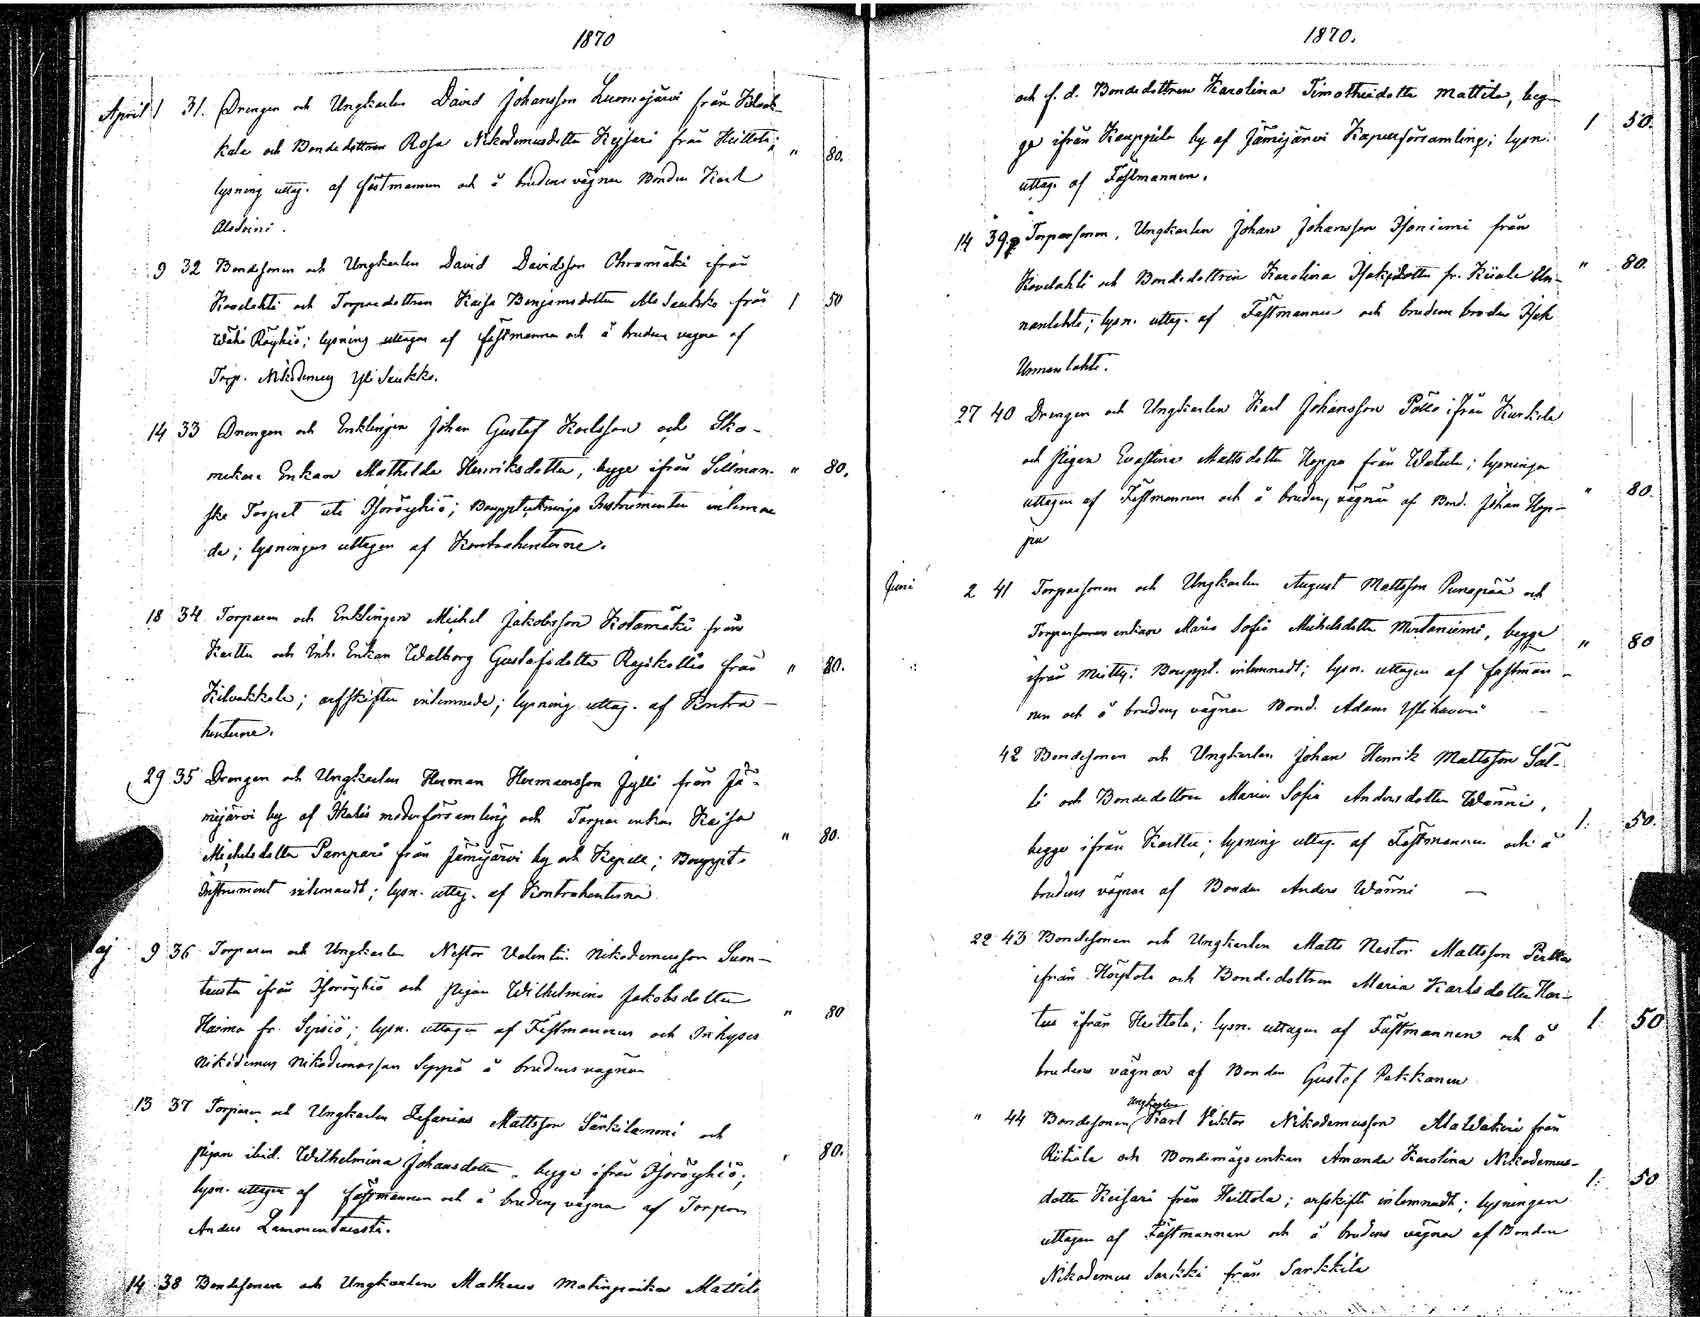 1870
April 1 31. Drengen och Ungkarlen David Johansson Lummajärvi från Kilvak-
kala och Bondedottren Rosa Nikodemusdotter Keisari från Heittola; " 80.
lysning uttag. af fästmannen och å brudens vägnar Bonden Karl
9 32 Bondesonen och Ungkarlen David Davidsson Ohramäki ifrån
Kovelahti och Torparedottren Kaisa Benjamsdotter Ala Saukko från 1 50
Wähä Röyhiö; lysning uttagen af fästmannen och å brudens vägnar af
Torp. Nikodemus Yli Saukko.
14 33 Drengen och Enklingen Johan Gustaf Karlsson och Sko-
makare Enkan Mathilda Henriksdotter, begge ifrån Sillman- " 80.
ske Torpet uti Isoröyhiö; Boupptecknings Instrumenter inlemna
de; lysningen uttagen af Kontrahenterne.
18 34 Torparen och Enklingen Michel Jakobsson Kotamäki från
Karttu och Inh. Enkan Walborg Gustafsdotter Rajikallio från " 80.
Kilvakkala; arfskiften inlemnade; lysning uttag. af Kontra-
henterne.
29 35 Drengen och Ungkarlen Herman Hermansson Jylli från Jä-
mijärvi by af Ikalis moderförsamling och Torpar enkan Kaisa
Michelsdotter Pampari från Jämijärvi by och Kapell; Bouppt. " 80.
Instrument inlemnadt; lysn. uttag. af Kontrahenterna
aj 9 36 Torparen och Ungkarlen Nestor Valentin Nikodemusson Suon-
tausta ifrån Isoröyhiö och pigan Wilhelmina Jakobsdotter
Haima fr. Sipsiö; lysn. uttagen af Fästmannen och Inhyses " 80
Nikodemus Nikodemusson Seppä å brudens vägnar
13 37 Torparen och Ungkarlen Zefanias Mattsson Särkilammi och
pigan ibid. Wilhelmina Johansdotter, begge ifrån Isoröyhiö; " 80.
lysn. uttagen af fästmannen och å brudens vägnar af Torparen
Anders Lammentausta.
14 38 Bondesonen och Ungkarlen Matheus Matinpoika Mattila
1870.
och f. d. Bondedottren Karolina Timotheidotter Mattila, beg-
ge ifrån by af Jämijärvi Kapellförsamling; lysn. 1 50.
uttag. af Fästmannen.
14 39. Torparsonen, Ungkarlen Johan Johansson Isoniemi från
Kovelahti och Bondedottren Karolina Isaksdotter fr. Kiiala Un- " 80.
nanlahti; lysn. uttag. af Fästmannen och brudens broder Isak
Unnanlahti.
27 40 Drengen och Ungkarlen Karl Johansson Pollo ifrån Kurkela
och Pigan Evastina Mattsdotter Hoppa från Watula; lysningen
uttagen af Fästmannen och å brudens vägnar af Bond. Johan Hop- " 80.
pa
Juni 2 41 Torparsonen och Ungkarlen August Mattsson Punapää och
Torparsons enkan Maria Sofia Michelsdotter Mertaniemi, begge " 80
ifrån Miettu; Bouppt. inlemnadt; lysn. uttagen af fästman-
nen och å brudens vägnar Bond. Adam
42 Bondesonen och Ungkarlen Johan Henrik Mattsson Säl-
li och Bondedottren Maria Sofia Andersdotter Wänni,
begge ifrån Karttu; lysning uttag. af Fästmannen och å 1: 50.
brudens vägnar af Bonden Anders Wänni —
22 43 Bondesonen och Ungkarlen Matts Nestor Mattsson Perttu
ifrån och Bondedottren Maria Karlsdotter Har-
tus ifrån Heittola; lysn. uttagen af Fästmannen och å 1: 50
brudens vägnar af Bonden Gustaf Pakkanen
" 44 Bondesonen, Ungkarlen Karl Viktor Nikodemusson AlaWakeri från
Riitiala och Bondemågs enkan Amanda Karolina Nikodemus-
dotter Keisari från Heittola; arfskifte inlemnadt; lysningen 1: 50
uttagen af Fästmannen och å brudens vägnar af Bonden
Nikodemus Sarkki från Sarkkila